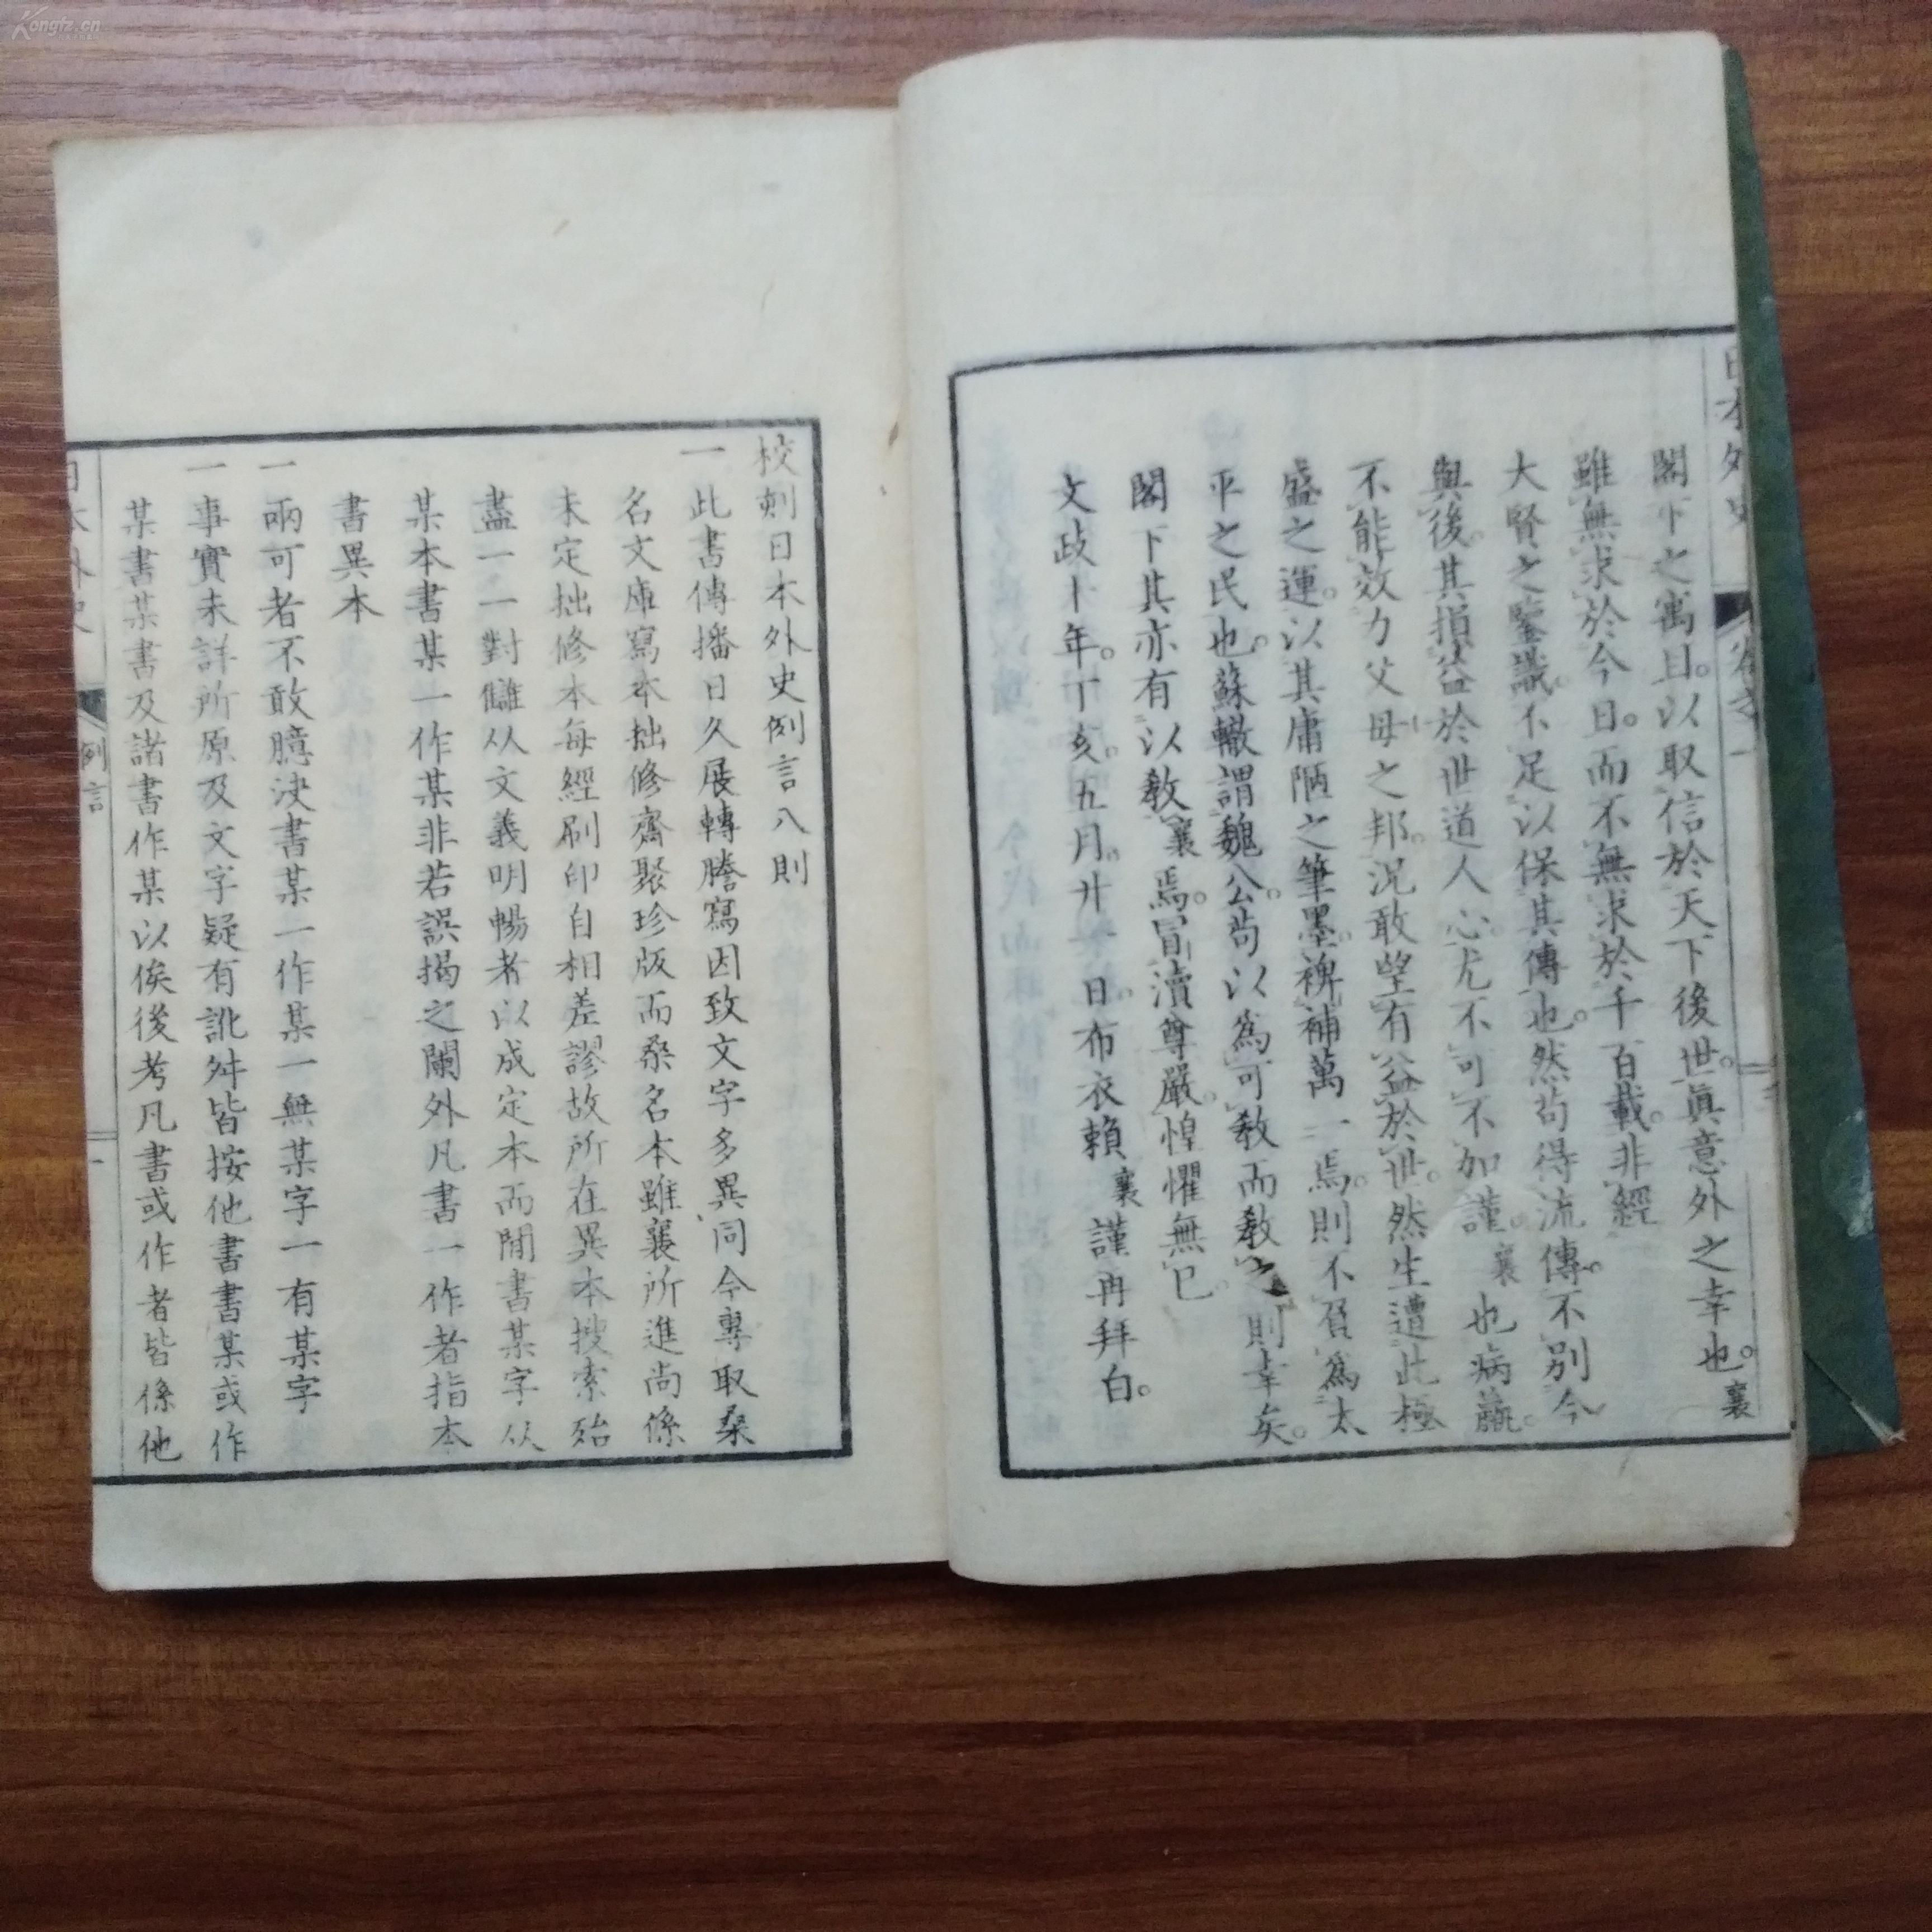 閣下之寓目。以取信於天下後世。眞意外之幸也。襄
雖無求於今日。而不無求於千百載。非經
大賢之鑒識。不足以保其傳也。然苟得流傳。不別今
與後。其損益於世道人心。尤不可不加謹。襄也病羸。
不能效力父母之邦。況敢望有益於世。然生遭此極
盛之運。以其庸陋之筆墨。裨補萬一焉。則不負爲太
平之民也。蘇轍謂魏公。苟以爲可敎而敎之。則幸矣。
閣下其亦有以敎襄焉。冒瀆尊嚴。惶懼無已。
文政十年。丁亥。五月。廿一日。布衣賴襄謹再拜白。
日本外史
校刻日本外史例言八則
一此書傳播日久展轉謄寫因致文字多異同今專取桑
名文庫寫本拙修齋聚珍版而桑名本雖襄所進尚係
未定拙修本每經刷印自相差謬故所在異本搜索殆
盡一一對讎从文義明暢者以成定本而閒書某字从
某本書某一作某非若誤揭之闌外凡書一作者指本
書異本
一兩可者不敢臆決書某一作某一無某字一有某字
一事實未詳所原及文字疑有訛舛皆按他書書某或作
某書某書及諸書作某以俟後考凡書或作者皆係他
日本外史 例言 一
Kongfz.cn